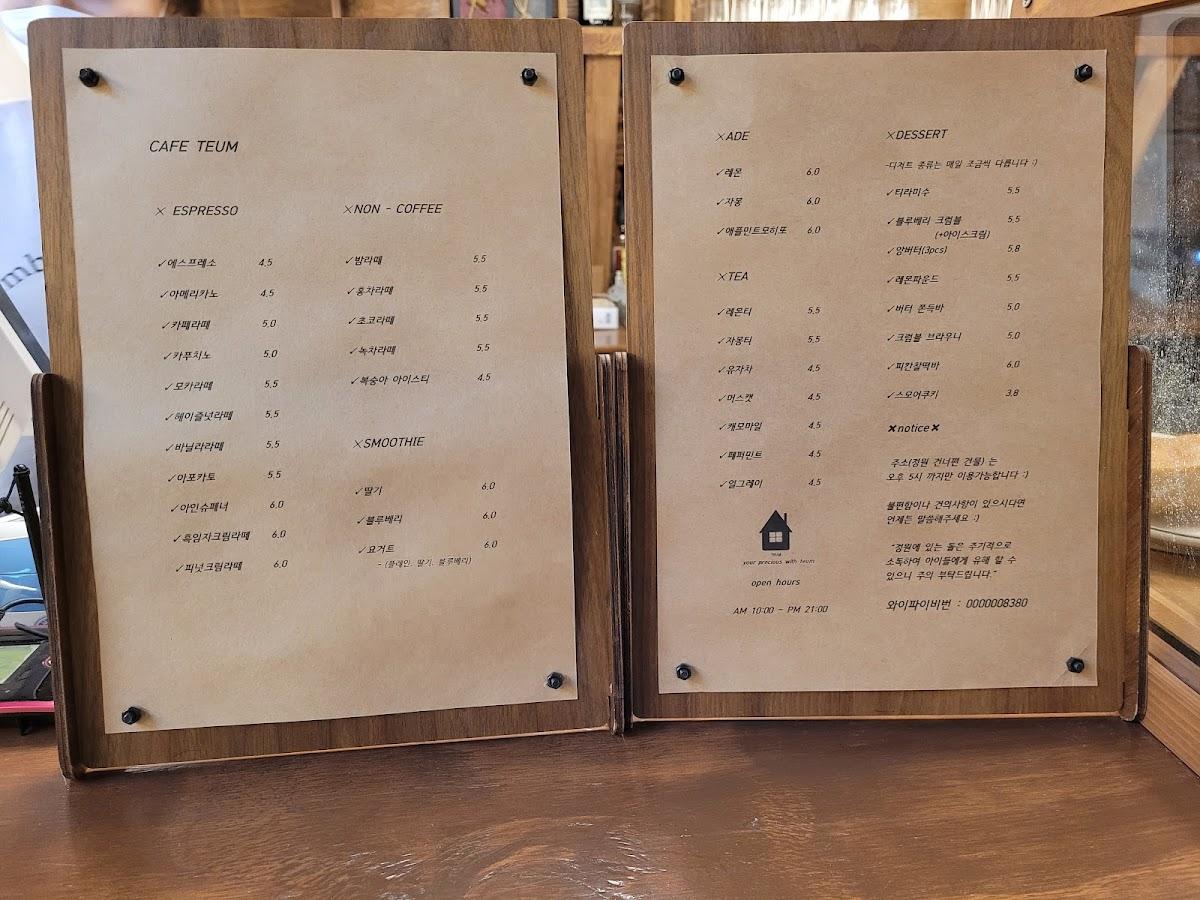 CAFE TEUM
× ESPRESSO
✓에스프레소 4.5
✓아메리카노 4.5
✓카페라떼 5.0
✓카푸치노 5.0
✓모카라떼 5.5
✓헤이즐넛라떼 5.5
✓바닐라라떼 5.5
✓아포카토 5.5
✓아인슈페너 6.0
✓흑임자크림라떼 6.0
✓피넛크림라떼 6.0
×NON - COFFEE
✓밤라떼 5.5
✓홍차라떼 5.5
✓초코라떼 5.5
✓녹차라떼 5.5
✓복숭아 아이스티 4.5
×SMOOTHIE
✓딸기 6.0
✓블루베리 6.0
✓요거트 6.0
- (플레인, 딸기, 블루베리)
×ADE
✓레몬 6.0
✓자몽 6.0
✓애플민트모히또 6.0
×TEA
✓레몬티 5.5
✓자몽티 5.5
✓유자차 4.5
✓머스캣 4.5
✓캐모마일 4.5
✓페퍼민트 4.5
✓얼그레이 4.5
your precious with teum
open hours
AM 10:00 - PM 21:00
×DESSERT
-디저트 종류는 매일 조금씩 다릅니다 :)
✓티라미수 5.5
✓블루베리 크럼블 5.5
(+아이스크림)
✓앙버터(3pcs) 5.8
✓레몬파운드 5.5
✓버터 쫀득바 5.0
✓크럼블 브라우니 5.0
✓피칸찰떡바 6.0
✓스모어쿠키 3.8
×notice×
주소(정원 건너편 건물) 는
오후 5시 까지만 이용가능합니다 :)
불편함이나 건의사항이 있으시다면
언제든 말씀해주세요 :)
"정원에 있는 돌은 주기적으로
소독하여 아이들에게 유해 할 수
있으니 주의 부탁드립니다."
와이파이비번 : 0000008380